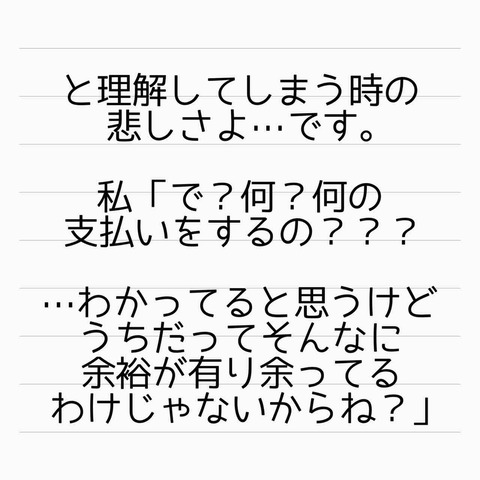 と理解してしまう時の
悲しさよ…です。
私「で？何？何の
支払いをするの？？？
…わかってると思うけど
うちだってそんなに
余裕が有り余ってる
わけじゃないからね？」